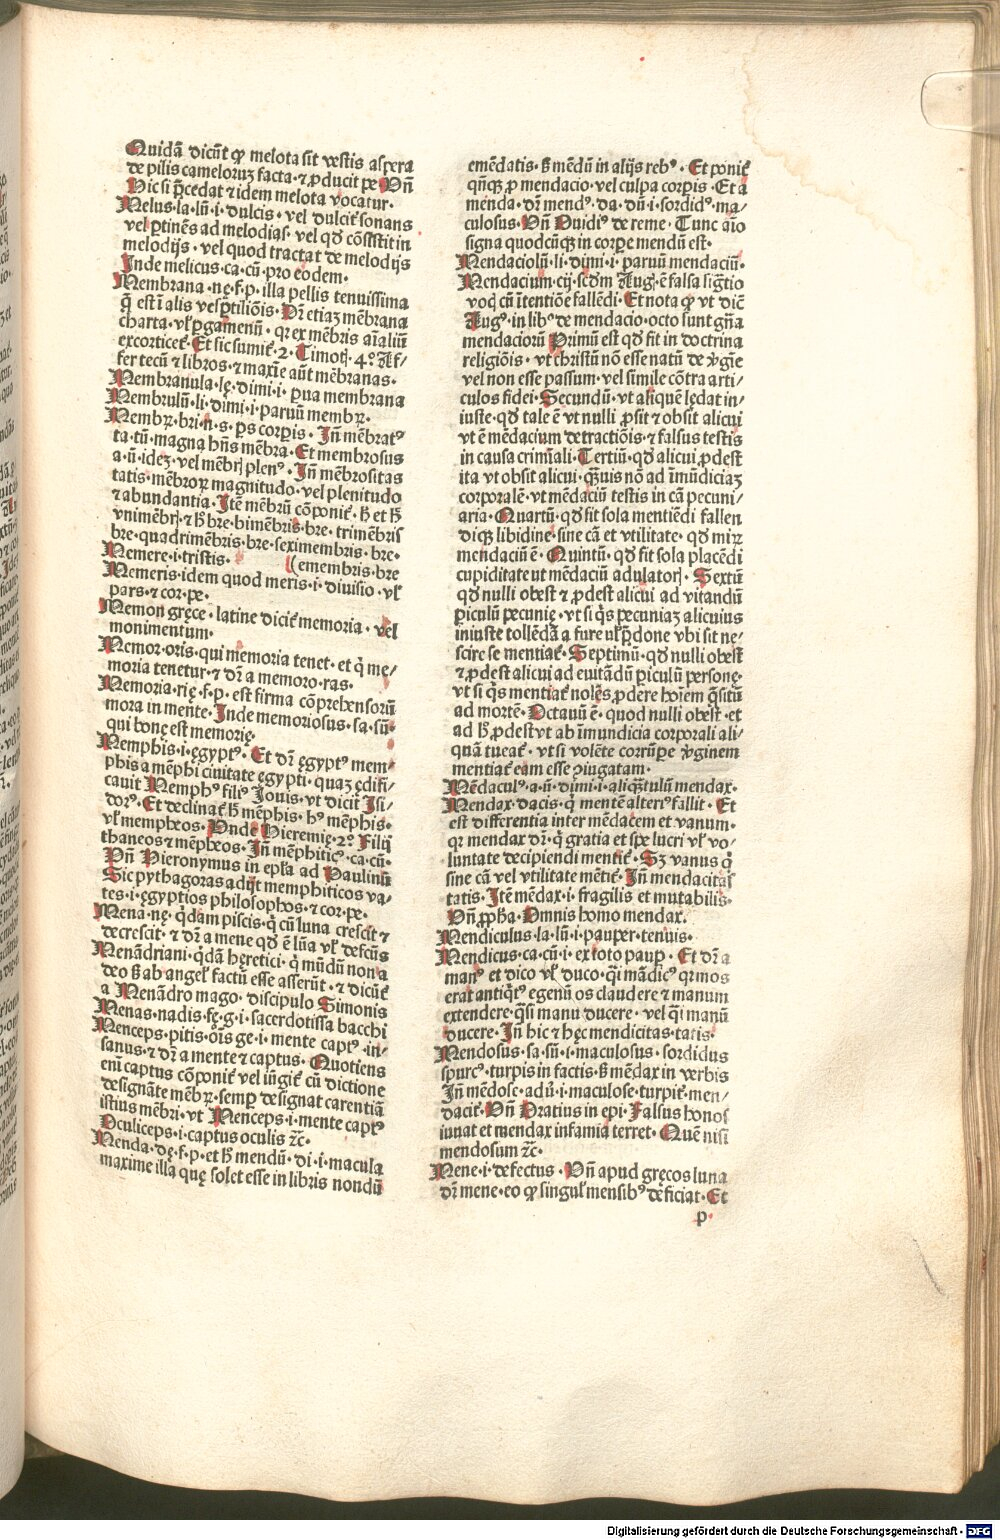 Quidā dicūt ꝙ melota sit vestis aspera
de pilis cameloruz facta · ⁊ ꝓducit pe · Vñ
Hic si p̄cedat ⁊ idem melota vocatur ·
Melus · la · lū · i · dulcis · vel dulcit᷑ sonans
vel ꝑtinēs ad melodias · vel qđ cōsistit in
melodijs · vel quod tractat de melodijs
Inde melicus · ca · cū · pro eodem ·
Membrana · ne · f · p · illa pellis tenuissima
q̄ est ī alis vesꝑtiliōis · Dr̄ etiaz mēbrana
charta · vl̓ ꝑgamenū · qꝛ ex mēbris aīaliū
excorticet᷑ · Et sic sumit᷑ · 2 · Timoṫ · 4° · Af/
fer tecū ⁊ libros · ⁊ maxīe aūt mēbranas ·
Membranula · lę · dimi · i · ꝑua membrana
Membrulū · li · dimi · i · paruū membꝝ ·
Membꝝ · bri · n · s · ꝑs corꝑis · Iñ mēbratꝰ
ta · tū · magna hñs mēbra · Et membrosus
a · ū · idez · vel mēbrꝭ plenꝰ · Iñ mēbrositas
tatis · mēbroꝝ magnitudo · vel plenitudo
⁊ abundantia · Itē mēbrū cōponit᷑ · ħ et ħ
vnimēbrꝭ · ⁊ ħ bre · bimēbris · bre · trimēbris
bre · quadrimēbris · bre · seximembris · bre ·
Memere · i · tristis · (emembris · bre
Memeris · idem quod meris · i · diuisio · vl̓
pars · ⁊ cor · pe ·
Memon gręce · latine dicit᷑ memoria · vel
monimentum ·
Memor · oris · qui memoria tenet · et q̄ me/
moria tenetur · ⁊ dr̄ a memoro · ras ·
Memoria · rię · f · p · est firma cōprehensorū
mora in mente · Inde memoriosus · sa · sū ·
qui bonę est memorię ·
Memphis · i · ęgyptꝰ · Et dr̄ ęgyptꝰ mem/
phis a mēphi ciuitate ęgypti · quaz ędifi/
cauit Memphꝰ filiꝰ Iouis · vt dicit Isi/
dorꝰ · Et declinat᷑ ħ mēphis · hꝰ mēphis ·
vl̓ mempheos · Vnde Hieremię · 2° · Filij
thaneos ⁊ mēpheos · Iñ mēphiticꝰ · ca · cū ·
Vñ Hieronymus in epl̓a ad Paulinū
Sic pythagoras adijt memphiticos va/
tes · i · ęgyptios philosophos · ⁊ cor · pe ·
Mena · nę · q̇dam piscis · q̇ cū luna crescit ⁊
decrescit · ⁊ dr̄ a mene qđ ē lūa vl̓ defcūs
Menādriani · q̇dā hęretici · q̇ mūdū non a
deo ß ab angel̓ factū esse asserūt · ⁊ dicūt᷑
a Menādro mago · discipulo Simonis
Menas · nadis · fę · g · i · sacerdotissa bacchi
Menceps · pitis · oīs ge · i · mente captꝰ · in/
sanus · ⁊ dr̄ a mente ⁊ captus · Quotiens
enī captus cōponit᷑ vel iūgit᷑ cū dictione
designāte mēbꝝ · semꝑ designat carentiā
istius mēbri · vt Menceps · i · mente captꝰ
Oculiceps · i · captus oculis ⁊c ·
Menda · dę · f · p · et ħ mendū · di · i · macula
maxime illa quę solet esse in libris nondū
emēdatis · ß mēdū in alijs rebꝰ · Et ponit᷑
qñqꝫ ꝓ mendacio · vel culpa corꝑis · Et a
menda · dr̄ mendꝰ · da · dū · i · sordidꝰ · ma/
culosus · Vñ Ouidiꝰ de reme · Tunc aīo
signa quodcūqꝫ in corꝑe mendū est ·
Mendaciolū · li · dimi · i · paruū mendaciū ·
Mendacium · cij · scdm Aug · ē falsa signtio
vocꝭ cū ītentiōe fallēdi · Et nota ꝙ vt dicit᷑
Augꝰ · in libꝰ de mendacio · octo sunt gña
mendaciorū Primū est qđ fit in doctrina
religiōis · vt christū nō esse natū de v̇gīe
vel non esse passum · vel simile cōtra arti/
culos fidei · Secundū · vt aliquē lędat in/
iuste · qđ tale ē vt nulli ꝓsit ⁊ obsit alicui
vt ē mēdacium detractiōis · ⁊ falsus testis
in causa crimīali · Tertiū · qđ alicui ꝓdest
ita vt obsit alicui · q̄uis nō ad īmūdiciaz
corporalē · vt mēdaciū testis in cā pecuni/
aria · Quartū · qđ fit sola mentiēdi fallen
diqꝫ libidine · sine cā et vtilitate · qđ miꝝ
mendaciū ē · Quintū · qđ fit sola placēdi
cupiditate ut mēdaciū adulatorꝭ · Sextū
qđ nulli obest ⁊ ꝓdest alicui ad vitandū
ꝑiculū pecunię · vt si q̇s pecuniaz alicuius
iniuste tollēdā a fure ul̓ p̄done vbi sit ne/
scire se mentiat᷑ · Septimū · qđ nulli obest
⁊ ꝓdest alicui ad euitādū ꝑiculū personę ·
vt si q̇s mentiat᷑ nolēs ꝓdere hoīem q̄situ
ad mortē · Octauū ē · quod nulli obest · et
ad ħ ꝓdest vt ab īmundicia corporali ali/
quā tueat᷑ · vt si volēte corrūꝑe v̇ginem
mentiat᷑ eam esse ꝯiugatam ·
Mēdaculꝰ · a · ū · dimi · i · aliq̄tulū mendax ·
Mendax · dacis · q̇ mentē alterꝰ fallit · Et
est differentia inter mēdacem et vanum ·
qꝛ mendax dr̄ · q̇ gratia et spe lucri vl̓ vo/
luntate decipiendi mentit᷑ · Sꝫ vanus q̇
sine cā vel vtilitate mētit᷑ · Iñ mendacitas
tatis · Itē mēdax · i · fragilis et mutabilis ·
Vñ ꝓpħa · Omnis homo mendax ·
Mendiculus · la · lū · i · pauper · tenuis ·
Mendicus · ca · cū · i · ex toto pauꝑ · Et dr̄ a
manꝰ et dico vl̓ duco · q̇i mādicꝰ qꝛ mos
erat antiq̇tꝰ egenū os claudere ⁊ manum
extendere · q̄si manu ducere · vel q̇i manū
ducere · Iñ hic ⁊ hęc mendicitas · tatis ·
Mendosus · sa · sū · i · maculosus · sordidus
spurcꝰ · turpis in factis · ß mēdax in verbis
Iñ mēdose · aduꝰ · i · maculose · turpit᷑ · men/
dacit᷑ · Vñ Oratius in epi · Falsus honos
iuuat et mendax infamia terret · Quē nisi
mendosum ⁊c ·
Mene · i · defectus · Vñ apud gręcos luna
dr̄ mene · eo ꝙ singul̓ mensibꝰ deficiat · Et
p ·
Digitalisierung gefördert durch die Deutsche Forschungsgemeinschaft - DFG